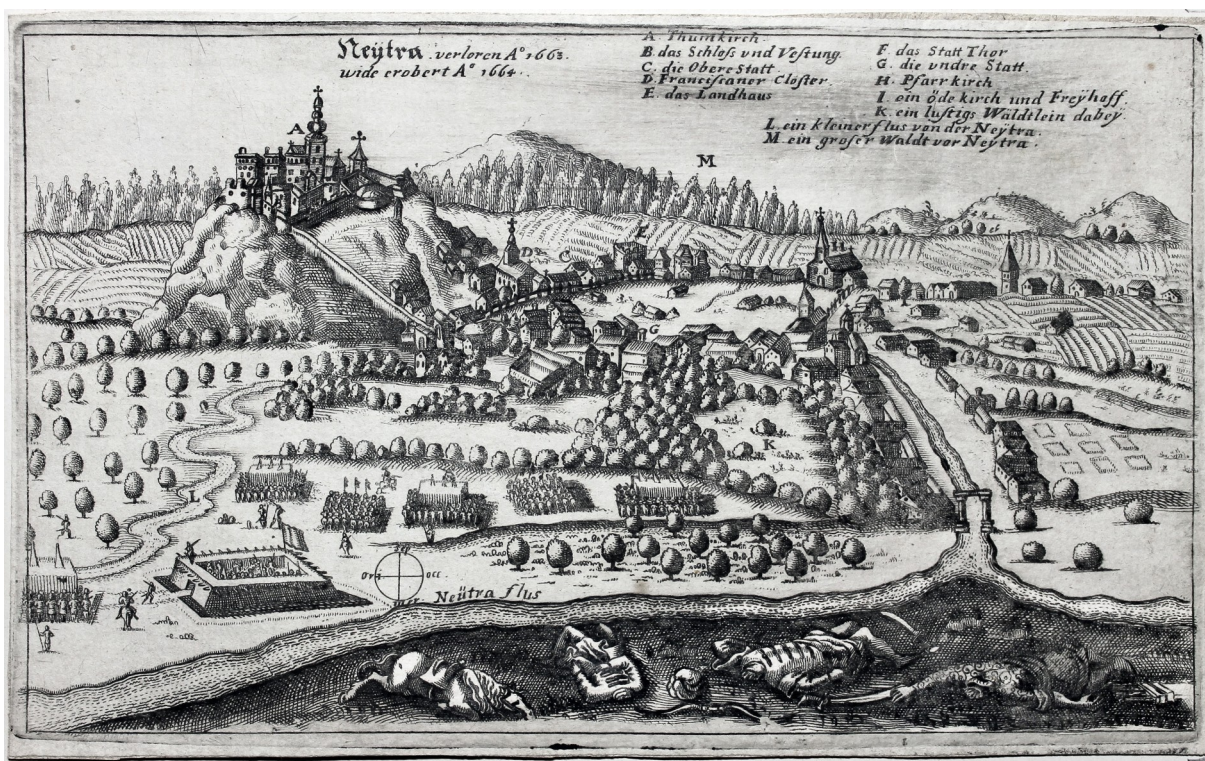 Neÿtra verloren Aº 1663.
wide erobert Aº 1664.
A Thumkirch.
B. das Schloss vnd Vestung.
C. die Obere Statt.
D. Franciscaner Closter.
E. das Landhaus
F. das Statt Thor
G. die vndre Statt.
H. Pfarrkirch
I. ein öde kirch und Freÿhoff.
K. ein lustigs Wäldtlein dabeÿ
L. ein kleiner flus von der Neÿtra.
M. ein groser Waldt vor Neÿtra.
A
M
E
D
C
G
K
L
Sep
Ori
Occ
Mer.
Neütra flus